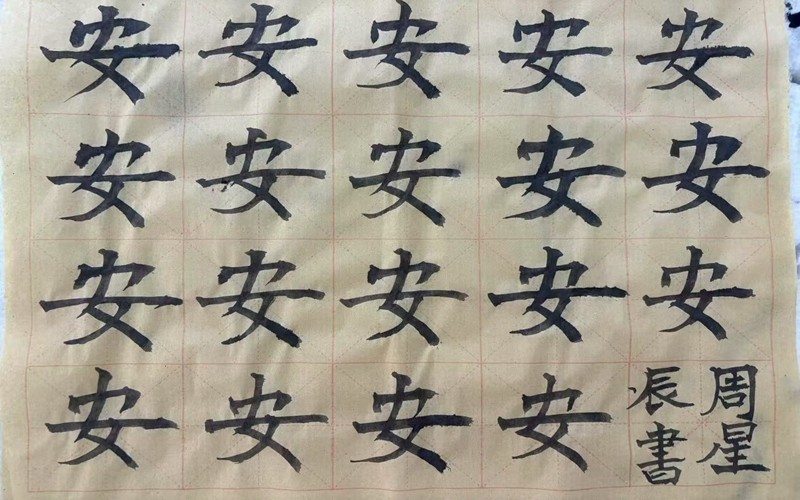 安安安安安
安安安安安
安安安安安
安安安安
周星
辰書